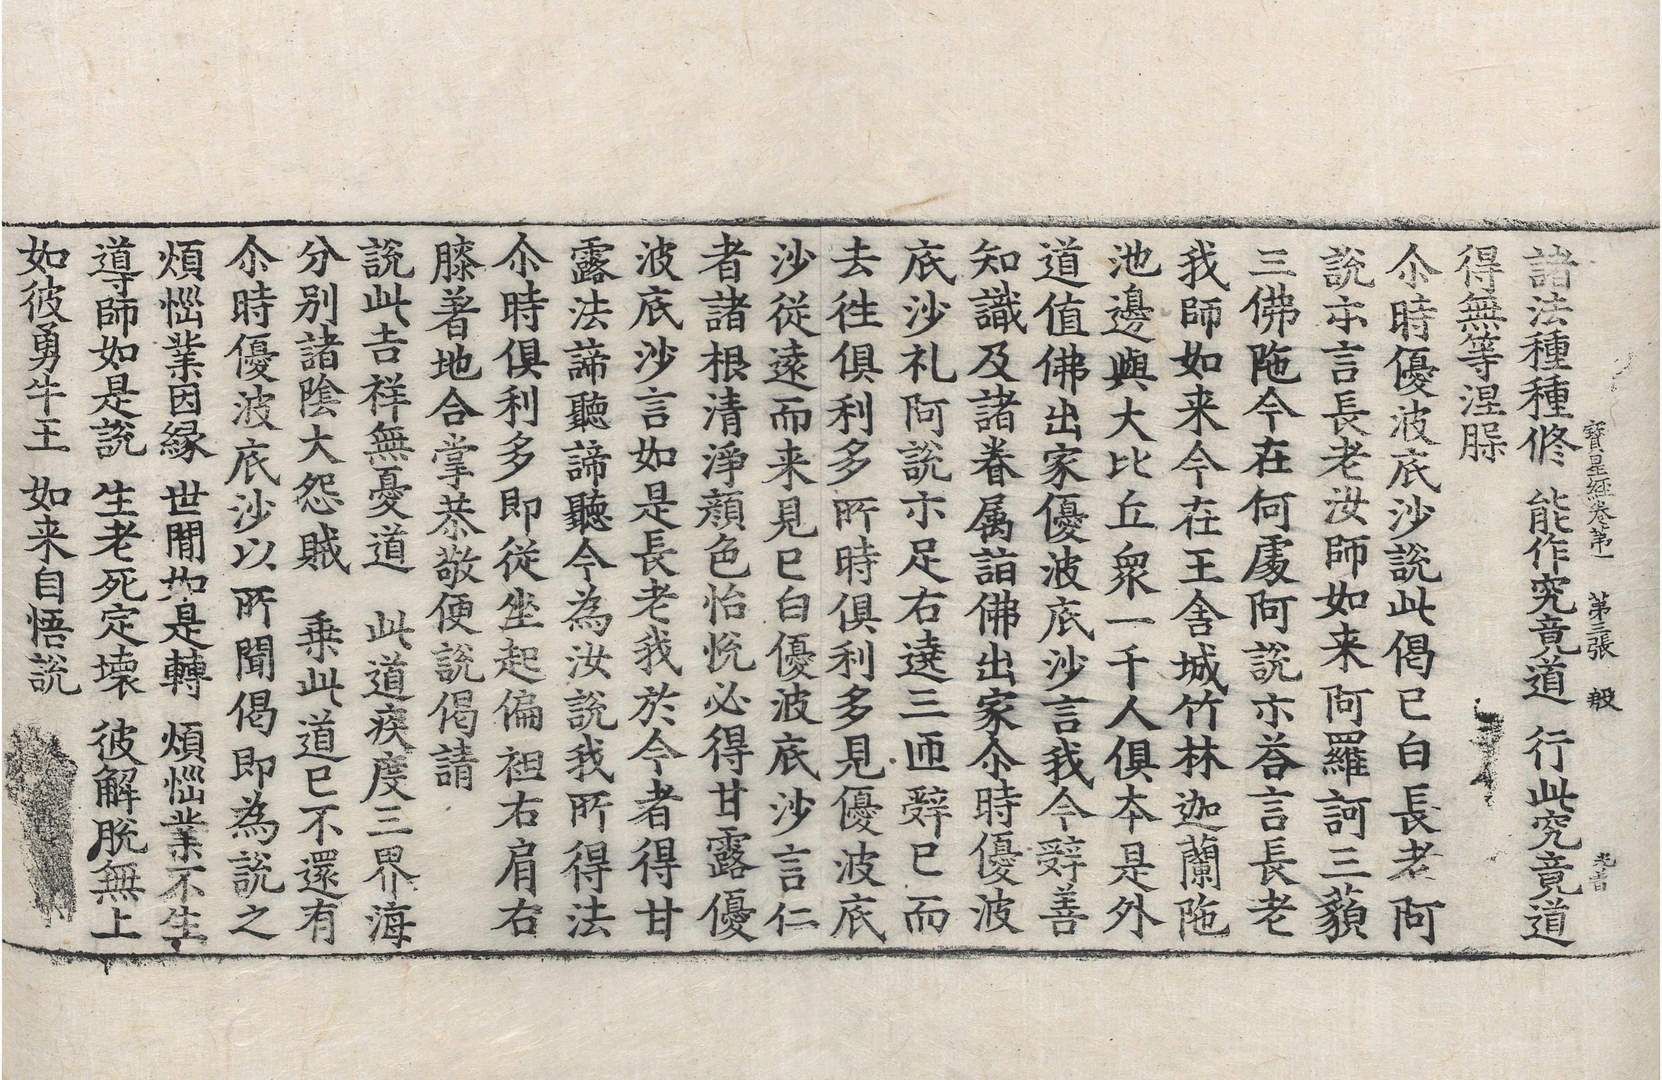 諸法種種修　能作究竟道　行此究竟道
寶星經卷第一　第三張　報
得無等涅槃
尒時優波底沙說此偈已白長老阿
說示言長老汝師如来阿羅訶三藐
三佛陁今在何處阿說示荅言長老
我師如来今在王舍城竹林迦蘭陁
池邊與大比丘衆一千人俱本是外
道值佛出家優波底沙言我今辤善
知識及諸眷属詣佛出家尒時優波
底沙礼阿說示足右遶三匝辤已而
去徃俱利多所時俱利多見優波底
沙從遠而来見已白優波底沙言仁
者諸根清淨顔色怡悅必得甘露優
波底沙言如是長老我於今者得甘
露法諦聽諦聽今為汝說我所得法
尒時俱利多即從坐起偏袒右肩右
膝著地合掌恭敬便說偈請
說此吉祥無憂道　此道疾度三界海
分別諸陰大怨賊　乗此道已不還有
尒時優波底沙以所聞偈即為說之
煩惱業因緣　世間如是轉　煩惱業不生
導師如是說　生老死定壞　彼解脫無上
如彼勇牛王　如来自悟說